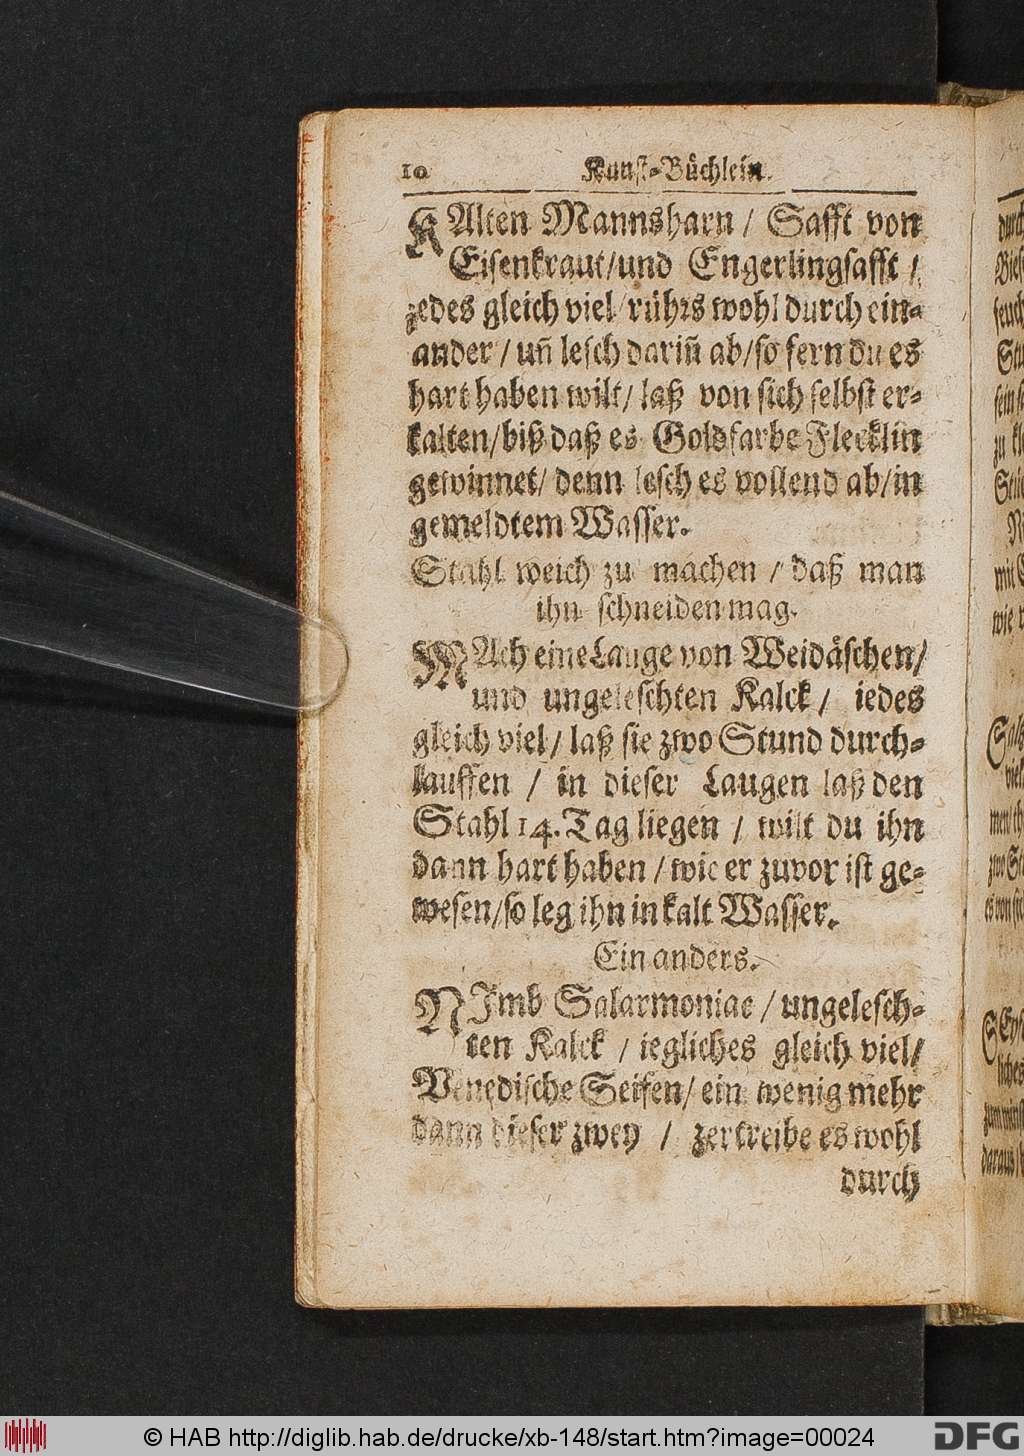 10 Kunst-Büchlein.
KAlten Mannsharn / Safft von
Eisenkraut/und Engerlingsafft /
jedes gleich viel/rührs wohl durch ein-
ander / uñ lesch dariñ ab/so fern du es
hart haben wilt/ laß von sich selbst er-
kalten/biß daß es Goldfarbe Flecklin
gewinnet/ denn lesch es vollend ab/in
gemeldtem Wasser.
Stahl weich zu machen / daß man
ihn schneiden mag.
MAch eine Lauge von Weidäschen/
und ungeleschten Kalck / iedes
gleich viel / laß sie zwo Stund durch-
lauffen / in dieser Laugen laß den
Stahl 14. Tag liegen / wilt du ihn
dann hart haben / wie er zuvor ist ge-
wesen/so leg ihn in kalt Wasser.
Ein anders.
NImb Salarmoniac / ungelesch-
ten Kalck / iegliches gleich viel/
Venedische Seifen/ ein wenig mehr
dann dieser zwey / zertreibe es wohl
durch
© HAB http://diglib.hab.de/drucke/xb-148/start.htm?image=00024
DFG